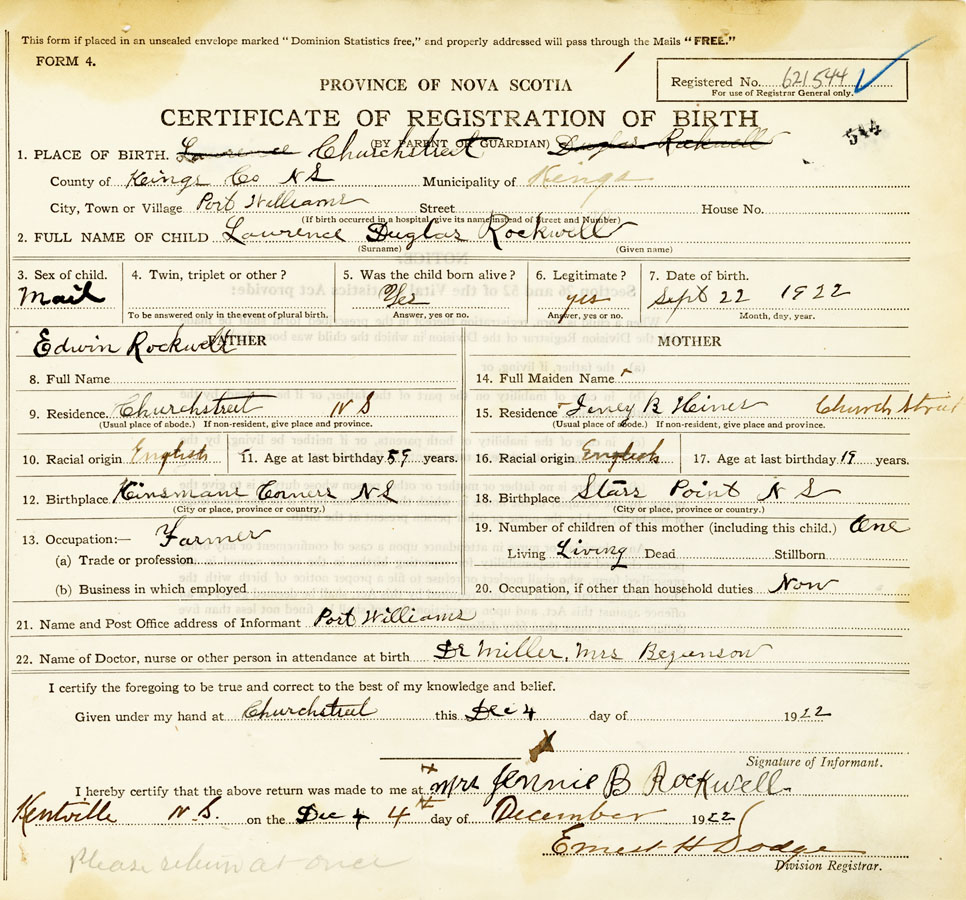 This form if placed in an unsealed envelope marked "Dominion Statistics free," and properly addressed will pass through the Mails "FREE."
FORM 4.
PROVINCE OF NOVA SCOTIA
Registered No. 621544
For use of Registrar General only.
CERTIFICATE OF REGISTRATION OF BIRTH
544
(BY PARENT OR GUARDIAN)
1. PLACE OF BIRTH. Lawrence Churchstreet Duglas Rockwell
County of Kings Co N S Municipality of Kings
City, Town or Village Port Williams Street House No.
(If birth occurred in a hospital, give its name instead of Street and Number)
2. FULL NAME OF CHILD Lawrence Duglas Rockwell
(Surname) (Given name)
3. Sex of child. Mail 4. Twin, triplet or other? 5. Was the child born alive? Yes 6. Legitimate? yes 7. Date of birth. Sept 22 1922
To be answered only in the event of plural birth. Answer, yes or no. Answer, yes or no. Month, day, year.
Edwin Rockwell FATHER MOTHER
8. Full Name 14. Full Maiden Name
9. Residence. Churchstreet N S 15. Residence Jeney B Heiner Church Street
(Usual place of abode.) If non-resident, give place and province. (Usual place of abode.) If non-resident, give place and province.
10. Racial origin English 11. Age at last birthday 59 years. 16. Racial origin English 17. Age at last birthday 19 years.
12. Birthplace Kinsmans Corners N S 18. Birthplace Stars Point N S
(City or place, province or country.) (City or place, province or country.)
13. Occupation:— Farmer 19. Number of children of this mother (including this child.) One
(a) Trade or profession Living Living Dead Stillborn
(b) Business in which employed 20. Occupation, if other than household duties Now
21. Name and Post Office address of Informant Port Williams
22. Name of Doctor, nurse or other person in attendance at birth Dr Miller, Mrs
I certify the foregoing to be true and correct to the best of my knowledge and belief.
Given under my hand at Churchstreet this Dec 4 day of 1922
Signature of Informant.
I hereby certify that the above return was made to me at Mrs Jennie B Rockwell
Kentville N.S. on the Dec 4 4 day of December 1922
Ernest H Dodge
Division Registrar.
Please return at once